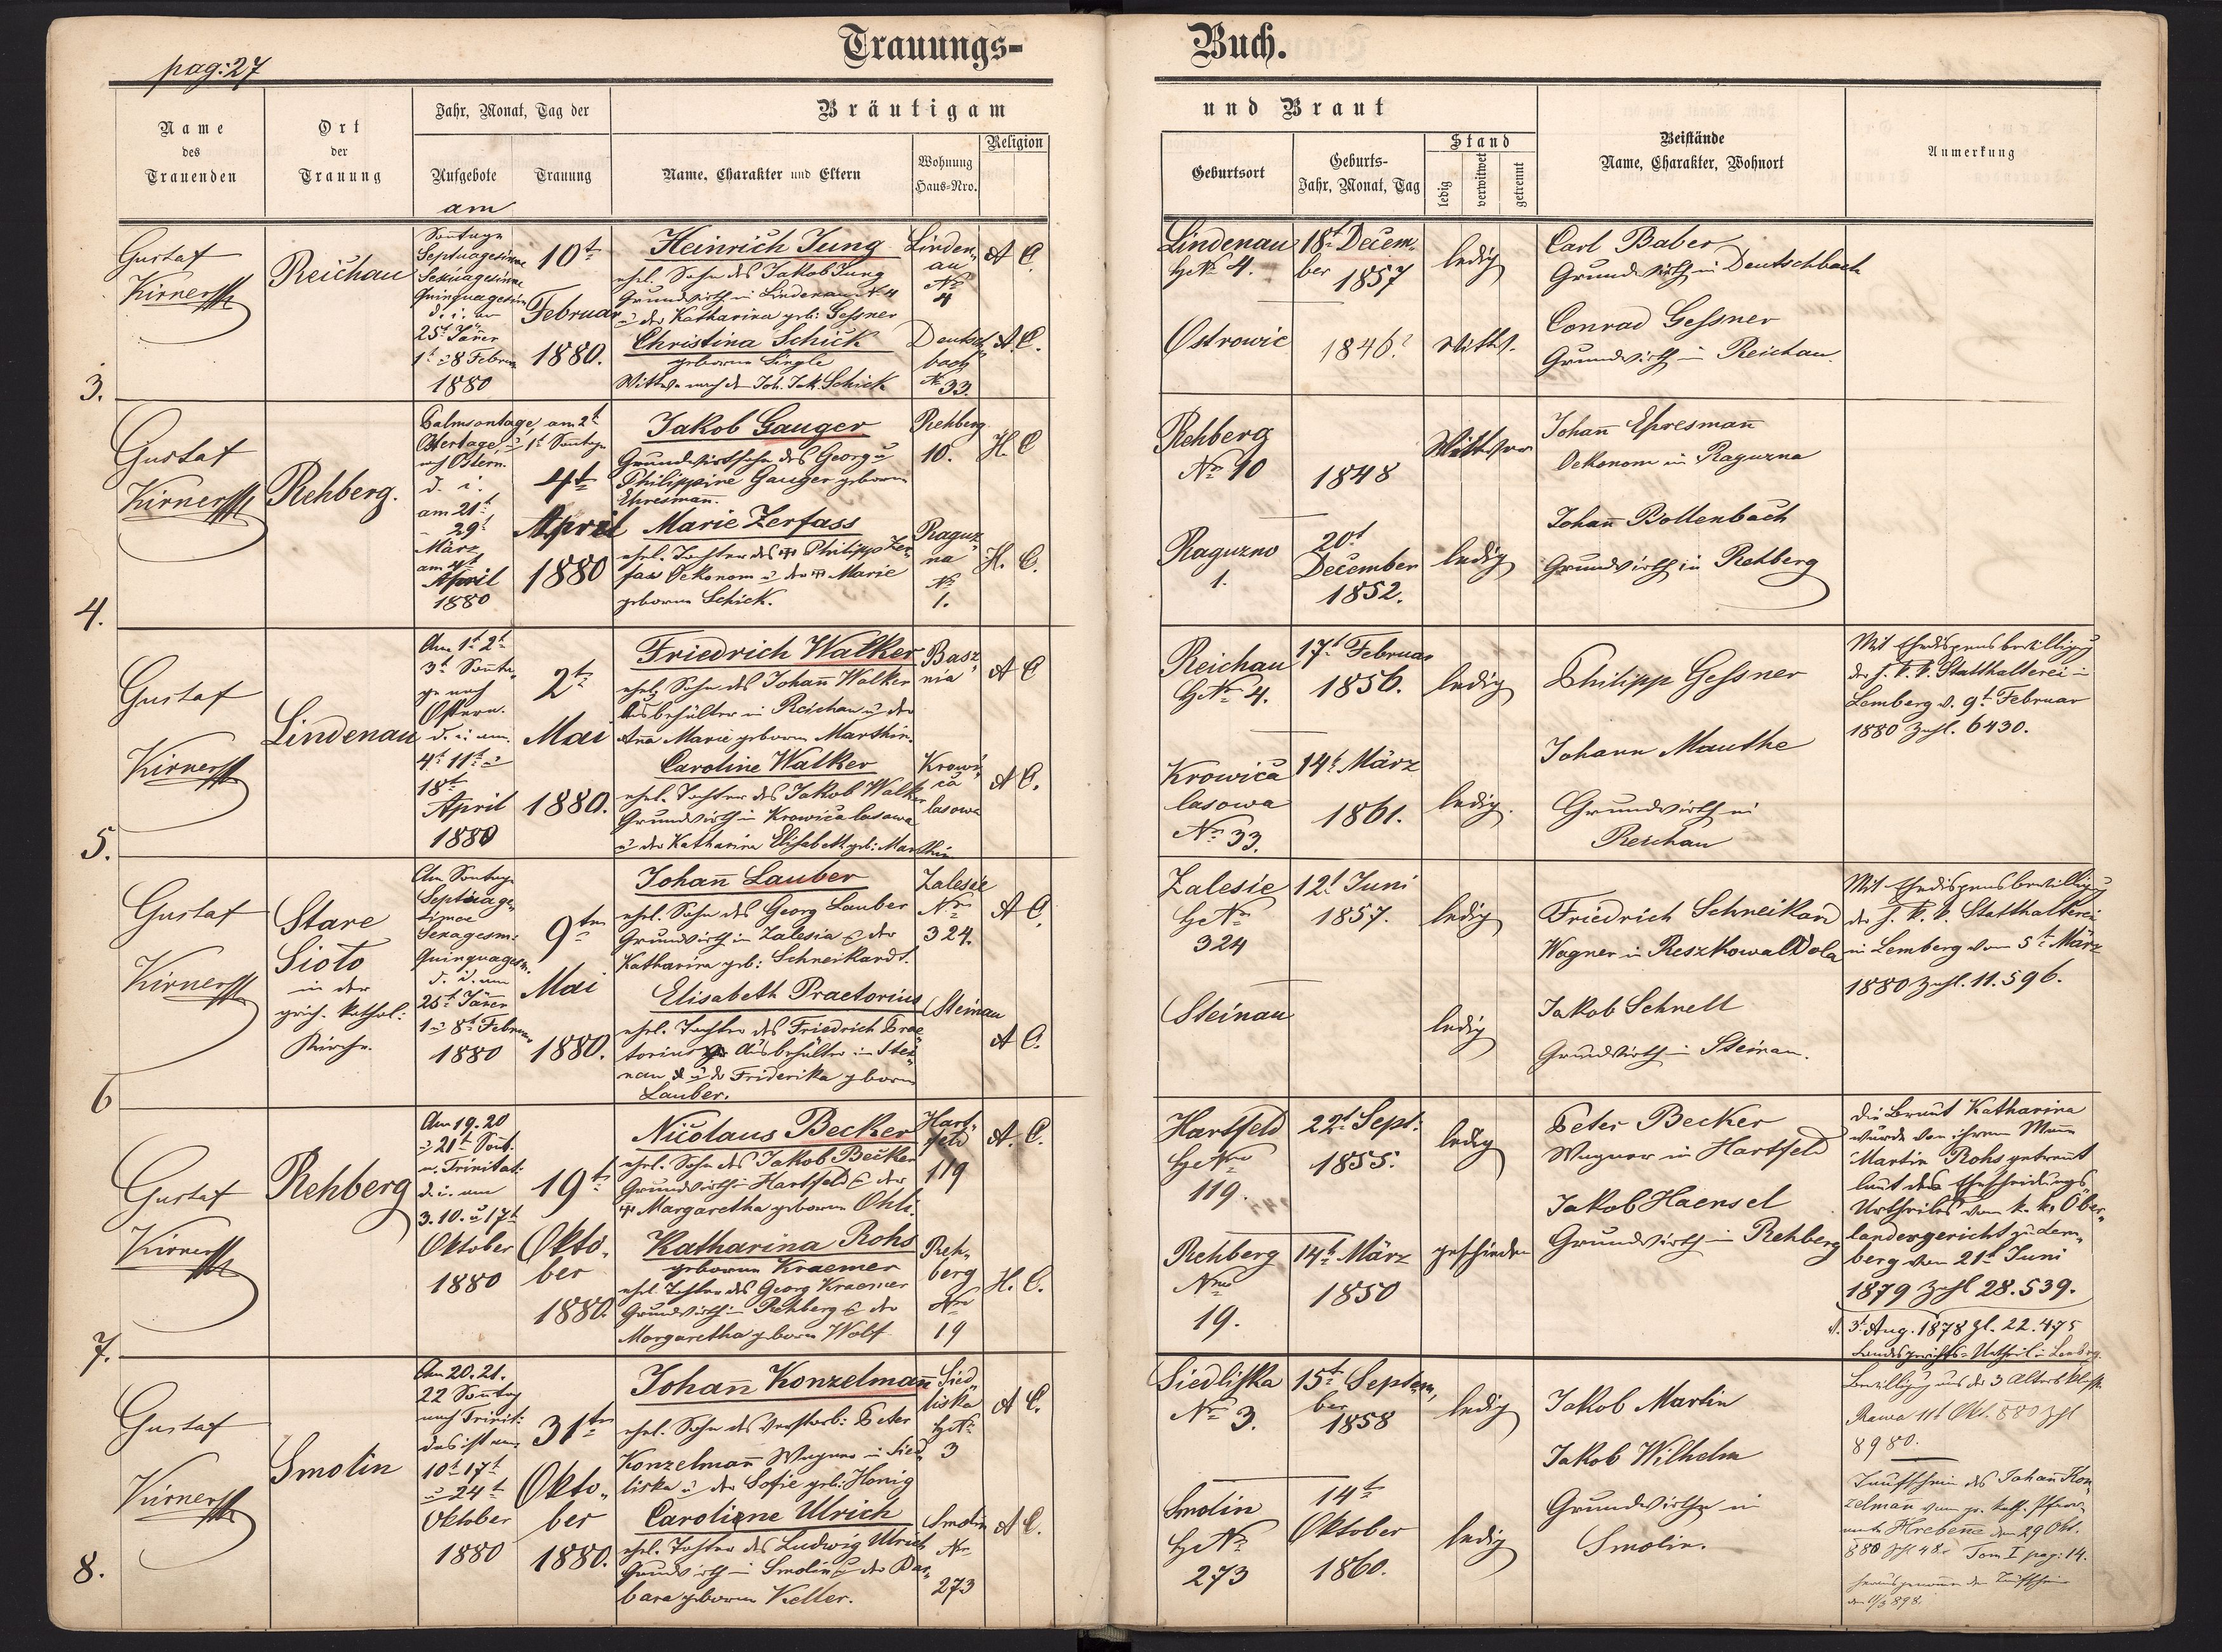 pag: 27
Trauungs-
Buch.
Name
des
Trauenden
Ort
der
Trauung
Jahr, Monat, Tag der
Aufgebote
Trauung
am
Bräutigam
Name, Charakter und Eltern
Wohnung
Haus-Nro.
Religion
und Braut
Geburtsort
Geburts-
Jahr, Monat, Tag
Stand
ledig
verwitwet
getrennt
Beistände
Name, Charakter, Wohnort
Anmerkung
3.
Gustaf
Kirner
Reichau
Sontage
Septuagesimae
Sexuagesimae
Quinquagesim
d. i. am
25t Jäner
1t u 8 Februar
1880
10t
Februar
1880.
Heinrich Jung
ehel. Sohn des Jakob Jung
Grundwirth in Lindenau N. 4
u der Katharina geb: Gessner
Christina Schick
geborene Single
Wittwe nach dem Joh. Jak. Schick
Linden„
au
No
4
Deutsch
bach
No 33.
A C.
A. C.
Lindenau
HNo 4.
Ostrowic
18t Decem„
ber 1857
1846?
ledig
Wittw.
Carl Baber
Grundwirth in Deutschbach
Conrad Gessner
Grundwirth in Reichau.
4.
Gustaf
Kirner
Rehberg.
Palmsontage, am 2t
Ostertage, u 1t Sontage
nach Ostern.
d. i.
am 21t
„ 29t
März
am 4t
April
1880
4t
April
1880
Jakob Gauger
Grundwirthsohn des Georg u
Philippine Gauger geborene
Ehresmann.
Marie Zerfass
ehel. Tochter des Philipp Zer„
fass Oekonom u der Marie
geborene Schick.
Rehberg
10.
Raguz„
na
No
1.
H. C
H. C.
Rehberg
No 10
Raguzno
1.
1848
20t
December
1852.
Wittwer
ledig
Johañ Ehresmañ
Oekonom in Raguzna
Johañ Bollenbach
Grundwirth in Rehberg
5.
Gustaf
Kirner
Lindenau
Am 1t 2t
3t Sonta„
ge nach
Ostern.
d. i. am.
4t 11t u
18t
April
1880
2t
Mai
1880.
Friedrich Walker
ehel. Sohn des Johañ Walker
Ausbehälter in Reichau u der
Anna Marie geborene Marthin.
Caroline Walker
ehel. Tochter des Jakob Walker
Grundwirth in Krowica lasowa
u der Katharina Elisabeth geb: Marthin
Basz„
nia
Krowi„
ca
lasowa
A C
A C.
Reichau
HNo 4.
Krowica
lasowa
No 33.
17t Februar
1856.
14t März
1861.
ledig
ledig.
Philipp Gessner
Johann Mauthe
Grundwirth in
Reichau
Mit Ehedispensbewilligung
der h. k. k. Statthalterei in
Lemberg v. 9t Februar
1880 Zahl. 6430.
6
Gustaf
Kirner
Stare
Sioło
in der
griech. kathol:
Kirche.
Am Sontage
Septuage„
simae
Sexagesim:
Quinquagesim.
d. i. am
25t Jäner
1 u 8t Februar
1880
9ten
Mai
1880.
Johañ Lauber
ehel. Sohn des Georg Lauber
Grundwirth in Zalesia & der
Katharina geb: Schneikardt.
Elisabeth Praetorius
ehel. Tochter des Friedrich Prae„
torius Ausbehälter in Stei„
nau u der Friderika geborene
Lauber.
Zalesie
No
324.
Steinau
A C.
A C.
Zalesie
HNo
324
Steinau
12t Juni
1857.
ledig
ledig
Friedrich Schneikard
Wagner in Reszkowa Wola
Jakob Schnell
Grundwirth in Steinau.
Mit Ehedispensbewilligung
der h. k. k. Statthalterei
in Lemberg vom 5t März
1880 Zahl. 11.596.
7.
Gustaf
Kirner
Rehberg
Am 19. 20
u 21t Sont.
n. Trinitat:
d. i. am
3. 10. u 17t
Oktober
1880
19t
Okto„
ber
1880.
Nicolaus Becker
ehel. Sohn des Jakob Becker
Grundwirth in Hartfeld & der
Margaretha geborene Ohli.
Katharina Rohs
geborene Kraemer
ehel. Tochter des Georg Kraemer
Grundwirth in Rehberg & der
Margaretha geborene Wolf
Hart„
feld
119
Reh„
berg
Nro
19
A. C.
H. C.
Hartfeld
HNro
119.
Rehberg
Nro
19.
22t Sept:
1855.
14t März
1850
ledig
geschieden
Peter Becker
Wagner in Hartfeld
Jakob Haensel
Grundwirth in Rehberg
Die Braut Katharina
wurde von ihrem Mann
Martin Rohs getrennt
laut des Ehescheidungs
Urtheiles vom k. k. Ober„
landesgericht zu Lem„
berg vom 21t Juni
1879 Zahl 28.539.
d. 3t Aug. 1878 Zl. 22.475
Landesgerichts-Urtheil in Lemberg.
8.
Gustaf
Kirner
Smolin
Am 20. 21.
22 Sontag
nach Trinit:
das ist am
10t 17t
u 24t
Oktober
1880
31ten
Okto„
ber
1880.
Johañ Konzelmañ
ehel. Sohn des verstorb: Peter
Konzelmañ Wagner in Sied„
liska u der Sofie geb: Honig
Caroline Ulrich
ehel. Tochter des Ludwig Ulrich
Grundwirth in Smolin & der Bar„
bara geborene Keller.
Sied
liska
HNo
3
Smolin
No
273
A C.
A C.
Siedliska
No 3.
Smolin
HNo
273
15t Septem„
ber
1858
14t
Oktober
1860.
ledig
ledig
Jakob Martin
Jakob Wilhelm
Grundwirthe in
Smolin.
Bewilligung aus der 3 Altersklasse
Rawa 11t Okt. 880 Zahl
8980.
Taufschein des Johañ Kon„
zelman vom gr. kath. Pfarr„
amte Hrebene den 29 Okt.
880 Zhl 48. Tom I pag: 14.